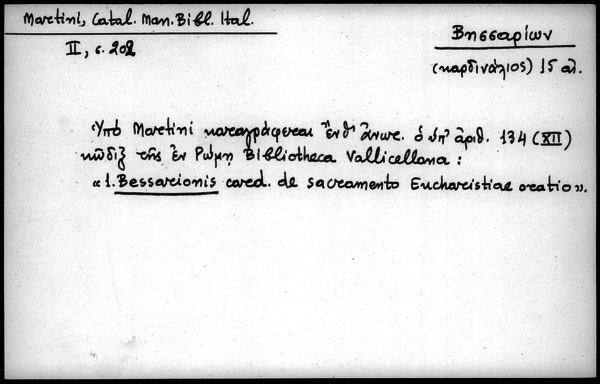 Martini, Catal. Man. Bibl. Ital.
II, σ. 202
Βησσαρίων
(καρδινάλιος) 15 αἰ.
Ὑπὸ Martini καταγράφεται ἔνθ' ἄνωτ. ὁ ὑπ' ἀριθ. 134 (XII)
κῶδιξ τῆς ἐν Ρώμῃ Bibliotheca Vallicellana :
« 1. Bessarionis card. de sacramento Eucharistiae oratio ».